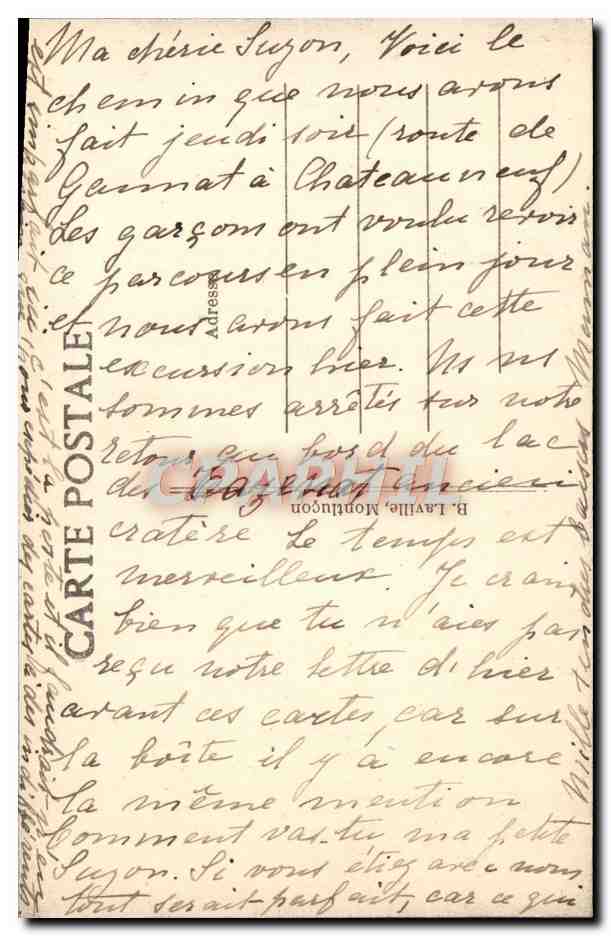 Ma chérie Suzon, Voici le
chemin que nous avons
fait jeudi soir (route de
Gannat à Chateauneuf)
Les garçons ont voulu revoir
ce parcours en plein jour
et nous avons fait cette
excursion hier. Ns ns
sommes arrêtés sur notre
retour au bord du lac
de Tazenat ancien
cratère Le temps est
merveilleux. Je crains
bien que tu n'aies pas
reçu notre lettre d'hier
avant ces cartes, car sur
la boîte il y a encore
la même mention
Comment vas-tu ma petite
Suzon. Si vous étiez avec nous
tout serait parfait, car ce qui
est imparfait ici c'est la poste et il faudrait
Mille tendres baisers Maman.
CARTE POSTALE
Adresse
B. Laville, Montluçon
CPAPHIL